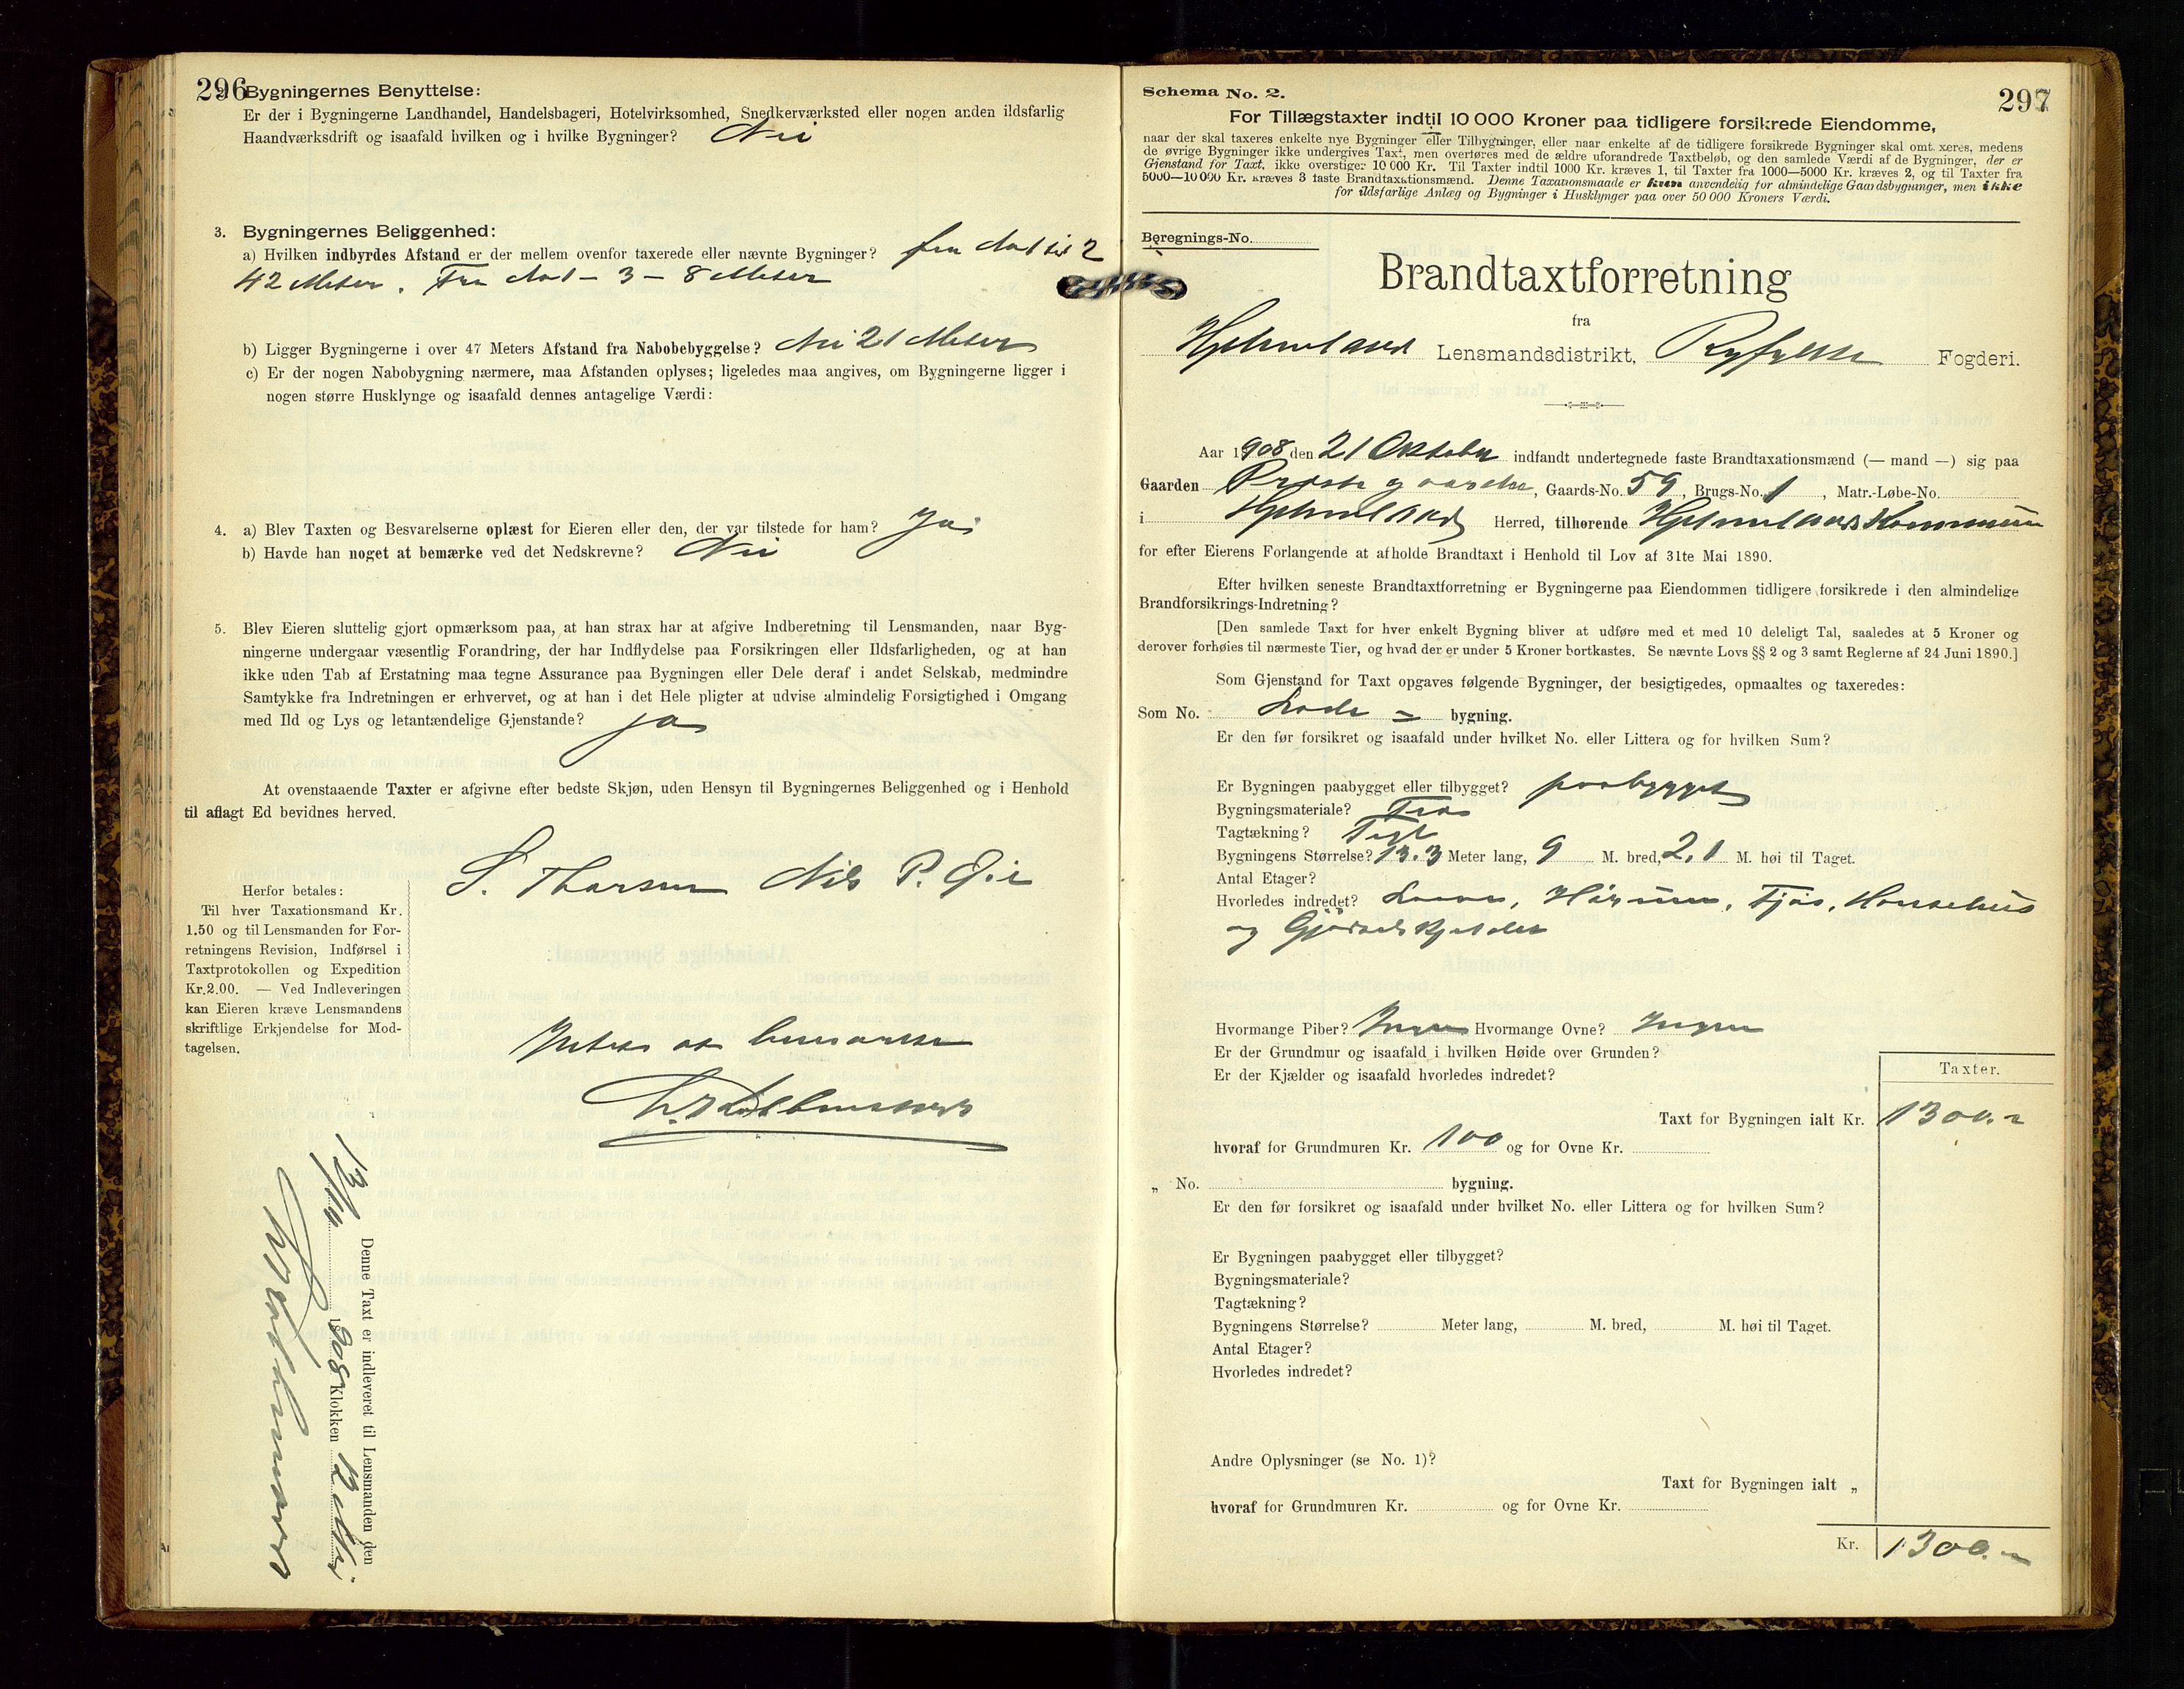 296
Bygningernes Benyttelse:
Er der i Bygningerne Landhandel, Handelsbageri, Hotelvirksomhed, Snedkerværksted eller nogen anden ildsfarlig
Haandværksdrift og isaafald hvilken og i hvilke Bygninger? Nei
3. Bygningernes Beliggenhed:
a) Hvilken indbyrdes Afstand er der mellem ovenfor taxerede eller nævnte Bygninger? fra No 1 til 2
42 Meter. Fra No 1 - 3 - 8 Meter
b) Ligger Bygningerne i over 47 Meters Afstand fra Nabobebyggelse? Nei 21 Meter
c) Er der nogen Nabobygning nærmere, maa Afstanden oplyses; ligeledes maa angives, om Bygningerne ligger i
nogen større Husklynge og isaafald dennes antagelige Værdi:
4. a) Blev Taxten og Besvarelserne oplæst for Eieren eller den, der var tilstede for ham? Ja
b) Havde han noget at bemærke ved det Nedskrevne? Nei
5. Blev Eieren sluttelig gjort opmærksom paa, at han strax har at afgive Indberetning til Lensmanden, naar Byg-
ningerne undergaar væsentlig Forandring, der har Indflydelse paa Forsikringen eller Ildsfarligheden, og at han
ikke uden Tab af Erstatning maa tegne Assurance paa Bygningen eller Dele deraf i andet Selskab, medmindre
Samtykke fra Indretningen er erhvervet, og at han i det Hele pligter at udvise almindelig Forsigtighed i Omgang
med Ild og Lys og letantændelige Gjenstande? ja
At ovenstaaende Taxter er afgivne efter bedste Skjøn, uden Hensyn til Bygningernes Beliggenhed og i Henhold
til aflagt Ed bevidnes herved.
S. Tharsen Nils P. Øie
Herfor betales:
Til hver Taxationsmand Kr.
1.50 og til Lensmanden for For-
retningens Revision, Indførsel i
Taxtprotokollen og Expedition
Kr. 2.00. — Ved Indleveringen
kan Eieren kræve Lensmandens
skriftlige Erkjendelse for Mod-
tagelsen.
Intet at bemærke
Denne Taxt er indleveret til Lensmanden den
13/11 1908 Klokken 12 Mid
Schema No. 2.
297
For Tillægstaxter indtil 10 000 Kroner paa tidligere forsikrede Eiendomme,
naar der skal taxeres enkelte nye Bygninger eller Tilbygninger, eller naar enkelte af de tidligere forsikrede Bygninger skal omtaxeres, medens
de øvrige Bygninger ikke undergives Taxt, men overføres med de ældre uforandrede Taxtbeløb, og den samlede Værdi af de Bygninger, der er
Gjenstand for Taxt, ikke overstiger 10 000 Kr. Til Taxter indtil 1000 Kr. kræves 1, til Taxter fra 1000—5000 Kr. kræves 2, og til Taxter fra
5000—10 000 Kr. kræves 3 faste Brandtaxationsmænd. Denne Taxationsmaade er kun anvendelig for almindelige Gaardsbygninger, men ikke
for ildsfarlige Anlæg og Bygninger i Husklynger paa over 50 000 Kroners Værdi.
Beregnings-No.
Brandtaxtforretning
fra
Hjelmeland Lensmandsdistrikt, Ryfylke Fogderi.
Aar 1908 den 21 Oktober indfandt undertegnede faste Brandtaxationsmænd (— mand —) sig paa
Gaarden Prestegaarden, Gaards-No. 59, Brugs-No. 1, Matr.-Løbe-No.
i Hjelmeland Herred, tilhørende Hjelmelands Kommune
for efter Eierens Forlangende at afholde Brandtaxt i Henhold til Lov af 31te Mai 1890.
Efter hvilken seneste Brandtaxtforretning er Bygningerne paa Eiendommen tidligere forsikrede i den almindelige
Brandforsikrings-Indretning?
[Den samlede Taxt for hver enkelt Bygning bliver at udføre med et med 10 deleligt Tal, saaledes at 5 Kroner og
derover forhøies til nærmeste Tier, og hvad der er under 5 Kroner bortkastes. Se nævnte Lovs §§ 2 og 3 samt Reglerne af 24 Juni 1890.]
Som Gjenstand for Taxt opgaves følgende Bygninger, der besigtigedes, opmaaltes og taxeredes:
Som No. Lade = bygning.
Er den før forsikret og isaafald under hvilket No. eller Littera og for hvilken Sum?
Er Bygningen paabygget eller tilbygget? paabygget
Bygningsmateriale? Træ
Tagtækning? Tegl
Bygningens Størrelse? 13.3 Meter lang, 9 M. bred, 2,1 M. høi til Taget.
Antal Etager?
Hvorledes indredet? Laave, Hörum, Fjös, Hønsehus
og Gjødselskjelder
Hvormange Piber? Ingen Hvormange Ovne? Ingen
Er der Grundmur og isaafald i hvilken Høide over Grunden?
Er der Kjælder og isaafald hvorledes indredet?
Taxter.
Taxt for Bygningen ialt Kr. 1300.-
hvoraf for Grundmuren Kr. 100 og for Ovne Kr.
„ No. bygning.
Er den før forsikret og isaafald under hvilket No. eller Littera og for hvilken Sum?
Er Bygningen paabygget eller tilbygget?
Bygningsmateriale?
Tagtækning?
Bygningens Størrelse? Meter lang, M. bred, M. høi til Taget.
Antal Etager?
Hvorledes indredet?
Andre Oplysninger (se No. 1)?
Taxt for Bygningen ialt „
hvoraf for Grundmuren Kr. og for Ovne Kr.
Kr. 1300.-